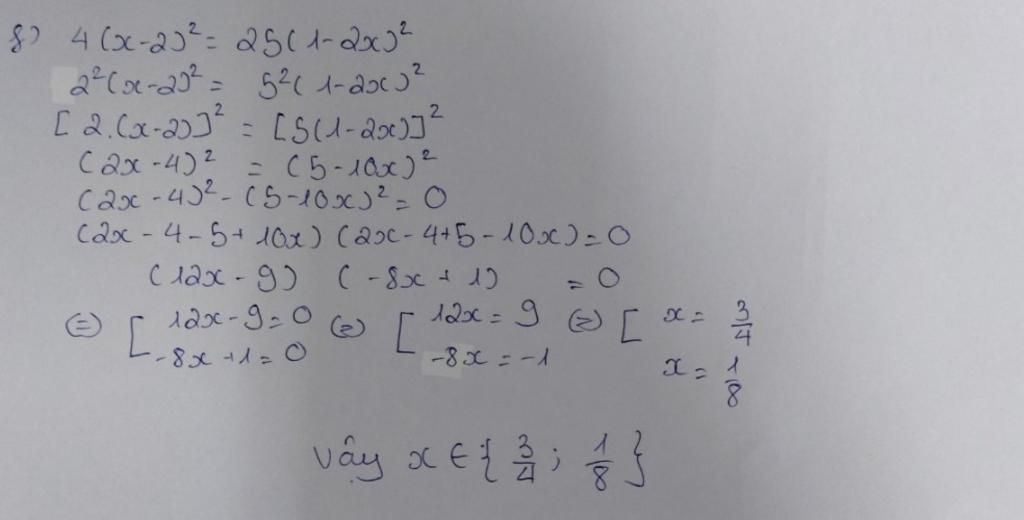 g) 4(x-2)² = 25(1-2x)²
2²(x-2)² = 5²(1-2x)²
[2.(x-2)]² = [5(1-2x)]²
(2x-4)² = (5-10x)²
(2x-4)² - (5-10x)² = 0
(2x-4-5+10x) (2x-4+5-10x) = 0
(12x-9) (-8x+1) = 0
⇔ [ 12x-9=0 ⇔ [ 12x=9 ⇔ [ x= 3/4
-8x+1=0 -8x=-1 x= 1/8
Vậy x ∈ { 3/4 ; 1/8 }